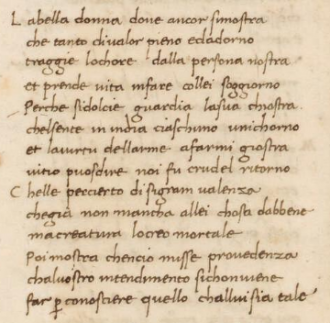 L abella donna doue ancor simostra
che tanto diualor pieno edadorno
traggie lochore dalla persona nostra
et prende uita infare collei soggiorno
Perche sidolcie guardia lasua chiostra
chelsente in india ciaschuno unichorno
et lauurtu dellarme afarmi giostra
uitio puosdire noi fu crudel ritorno
C helle percierto disigram ualenza
chegia non mancha allei chosa dabbene
macreatura locreo mortale
Poi mostra chencio misse prouedenza
chaluostro intendimento sichonuiene
far p conosciere quello challui sia tale